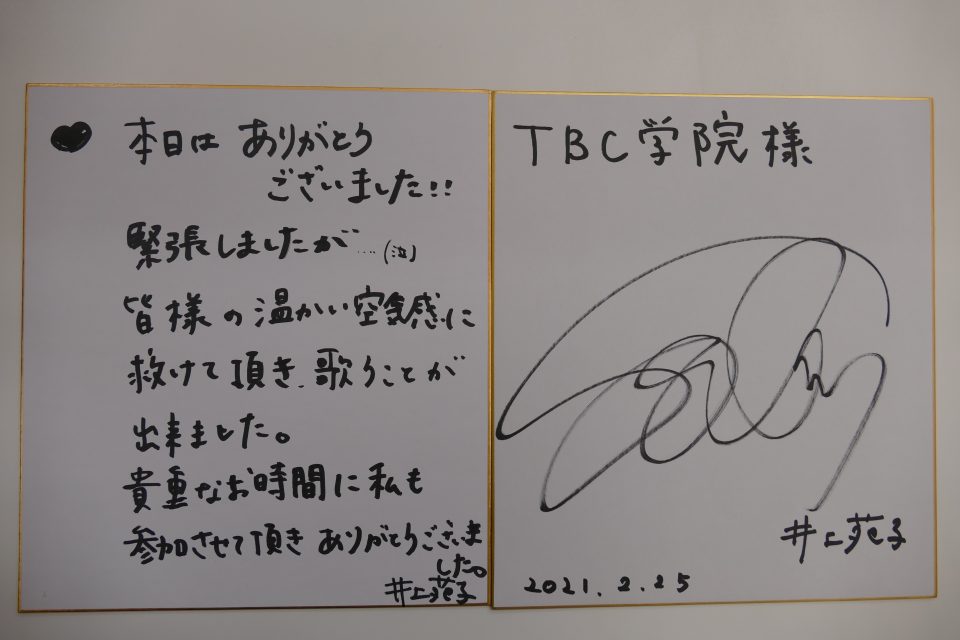 本日は ありがとう
ございました!!
緊張しましたが…(泣)
皆様の温かい空気感に
救けて頂き、歌うことが
出来ました。
貴重なお時間に私も
参加させて頂き ありがとうございま
した。
井上苑子
TBC学院様
井上苑子
2021.2.25